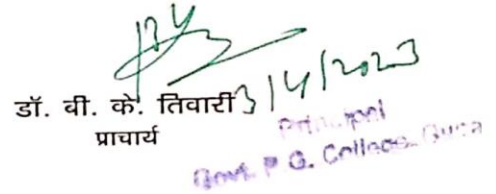 3/4/2023
डॉ. बी. के. तिवारी
प्राचार्य
Principal
Govt. P. G. College, Guna